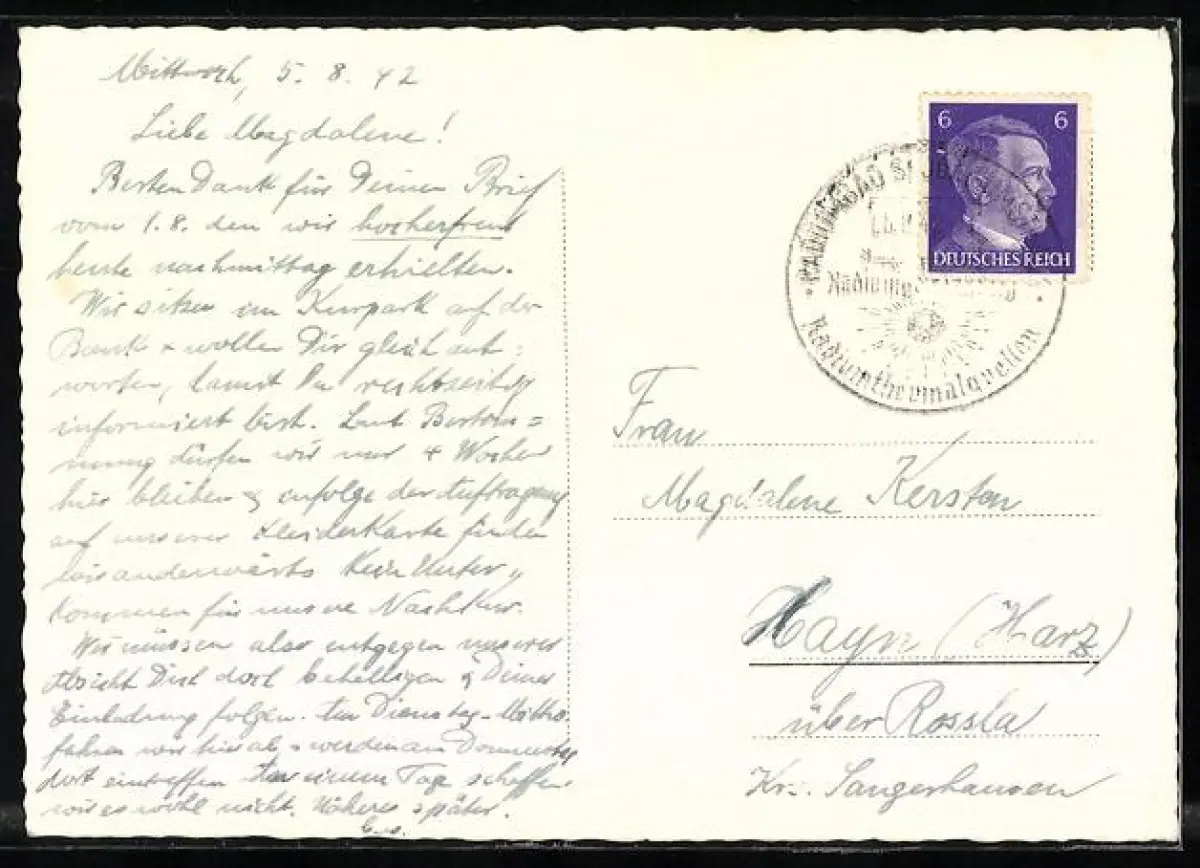 Mittwoch, 5. 8. 42
Liebe Magdalene!
Besten Dank für Deinen Brief
vom 1.8. den wir hocherfreut
heute nachmittag erhielten.
Wir sitzen im Kurpark auf der
Bank + wollen Dir gleich ant-
worten, damit Du rechtzeitig
informiert bist. Laut
dürfen wir nur 4 Wochen
hier bleiben & infolge der Eintragung
auf unserer Kleiderkarte finden
wir anderwärts kein Unter-
kommen für unsere Nachkur.
Wir müssen also entgegen unserer
Absicht Dich dort behelligen & Deiner
Einladung folgen. Am Dienstag-Mittw.
fahren wir hier ab + werden am Donnerstag
dort eintreffen. In einem Tage schaffen
wir es wohl nicht. Näheres später.
6
6
DEUTSCHES REICH
RADIUMBAD ST. JOACHIMSTHAL
Radiumthermalquellen
Frau
Magdalene Kersten
Hayn (Harz)
über Rossla
Kr. Sangerhausen